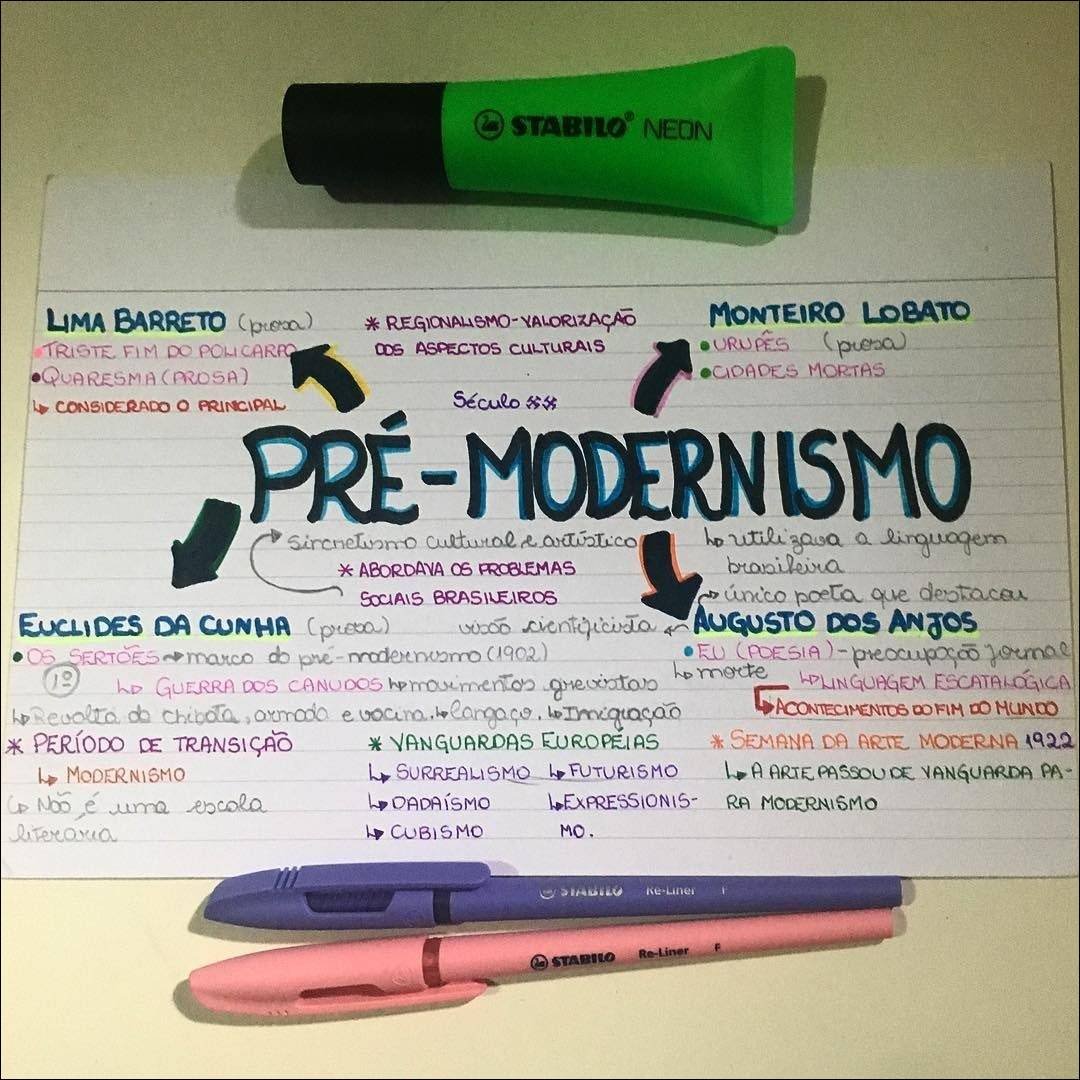 STABILO® NEON
LIMA BARRETO (prosa)
TRISTE FIM DO POLICARPO
•QUARESMA (PROSA)
↳ CONSIDERADO O PRINCIPAL
* REGIONALISMO-VALORIZAÇÃO
DOS ASPECTOS CULTURAIS
MONTEIRO LOBATO
•URUPÊS (prosa)
•CIDADES MORTAS
Século XX
PRÉ-MODERNISMO
sircretismo cultural e artístico
* ABORDAVA OS PROBLEMAS
SOCIAIS BRASILEIROS
↳ utilizava a linguagem
brasileira
único poeta que destacou
EUCLIDES DA CUNHA (prosa)
•OS SERTÕES → marco do pré-modernismo (1902)
1º
↳ GUERRA DOS CANUDOS ↳ movimentos grevistas
↳ Revolta da chibata, armada e vacina. ↳ cangaço. ↳ Imigração
visão cientificista ← AUGUSTO DOS ANJOS
•EU (POESIA) - preocupação formal
↳ morte ↳ LINGUAGEM ESCATALÓGICA
↳ ACONTECIMENTOS DO FIM DO MUNDO
* PERÍODO DE TRANSIÇÃO
↳ MODERNISMO
↳ Não é uma escola
literaria
* VANGUARDAS EUROPÉIAS
↳ SURREALISMO ↳ FUTURISMO
↳ DADAÍSMO ↳ EXPRESSIONIS-
↳ CUBISMO MO.
* SEMANA DA ARTE MODERNA 1922
↳ A ARTE PASSOU DE VANGUARDA PA-
RA MODERNISMO
STABILO Re-Liner F
STABILO Re-Liner F